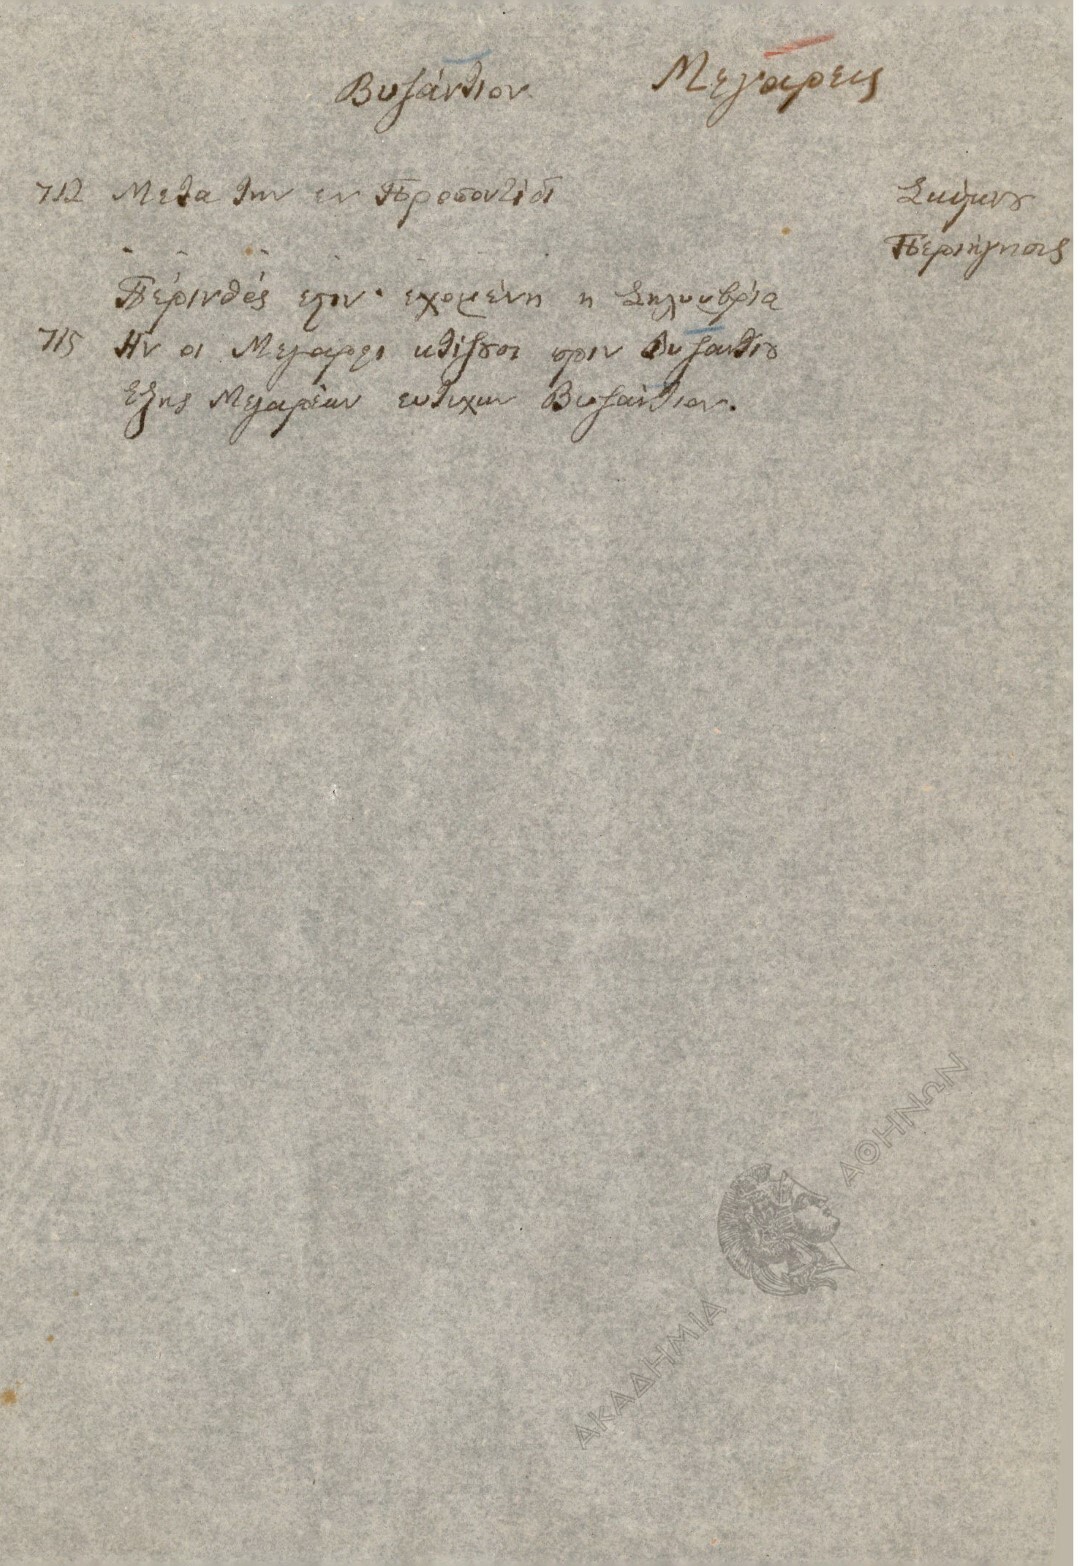 Βυζάντιον Μεγαρεις
712 Μετα την εν Προποντίδι
Σκύμνου
Περιήγησις
Πέρινθός εστιν· εχομένη η Σηλυμβρία
715 Ην οι Μεγαρεις κτίζουσι πριν Βυζαντίου
Εξης Μεγαρέων ευτυχων Βυζάντιον.
ΑΚΑΔΗΜΙΑ ΑΘΗΝΩΝ